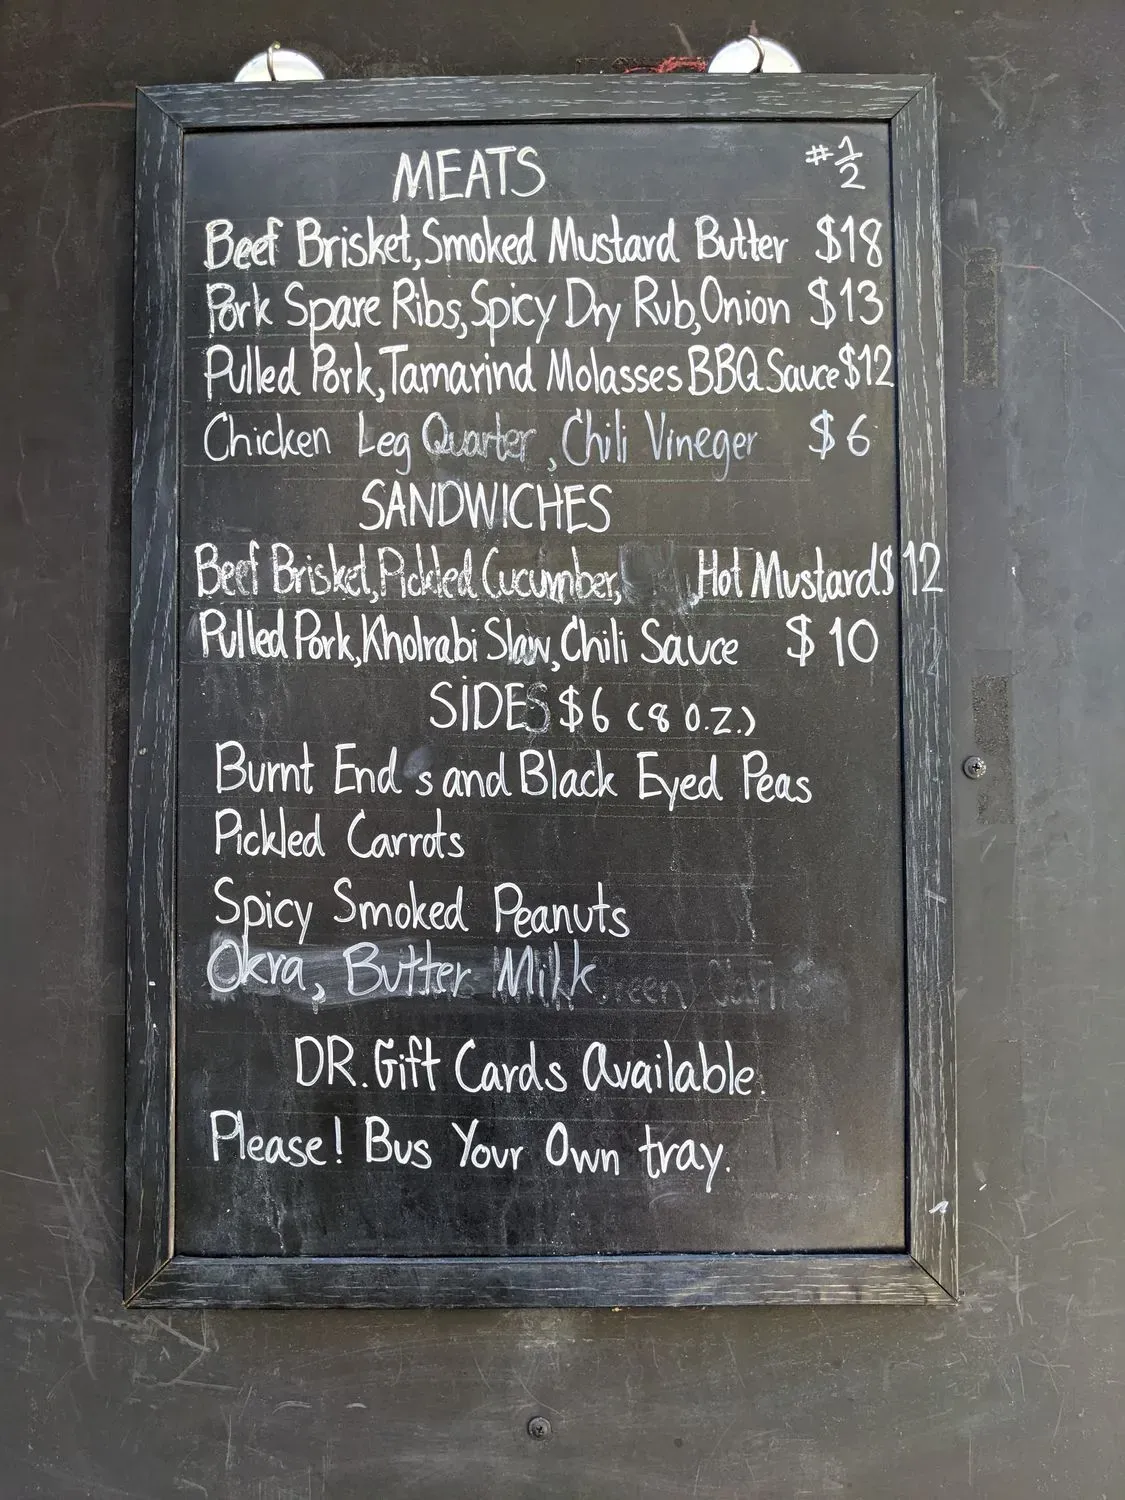 MEATS #1/2
Beef Brisket, Smoked Mustard Butter $18
Pork Spare Ribs, Spicy Dry Rub, Onion $13
Pulled Pork, Tamarind Molasses BBQ Sauce $12
Chicken Leg Quarter, Chili Vineger $6
SANDWICHES
Beef Brisket, Pickled Cucumber, , Hot Mustard $12
Pulled Pork, Kholrabi Slaw, Chili Sauce $10
SIDES $6 (8 O.Z.)
Burnt End s and Black Eyed Peas
Pickled Carrots
Spicy Smoked Peanuts
Okra, Butter Milk
DR. Gift Cards Available.
Please! Bus Your Own tray.